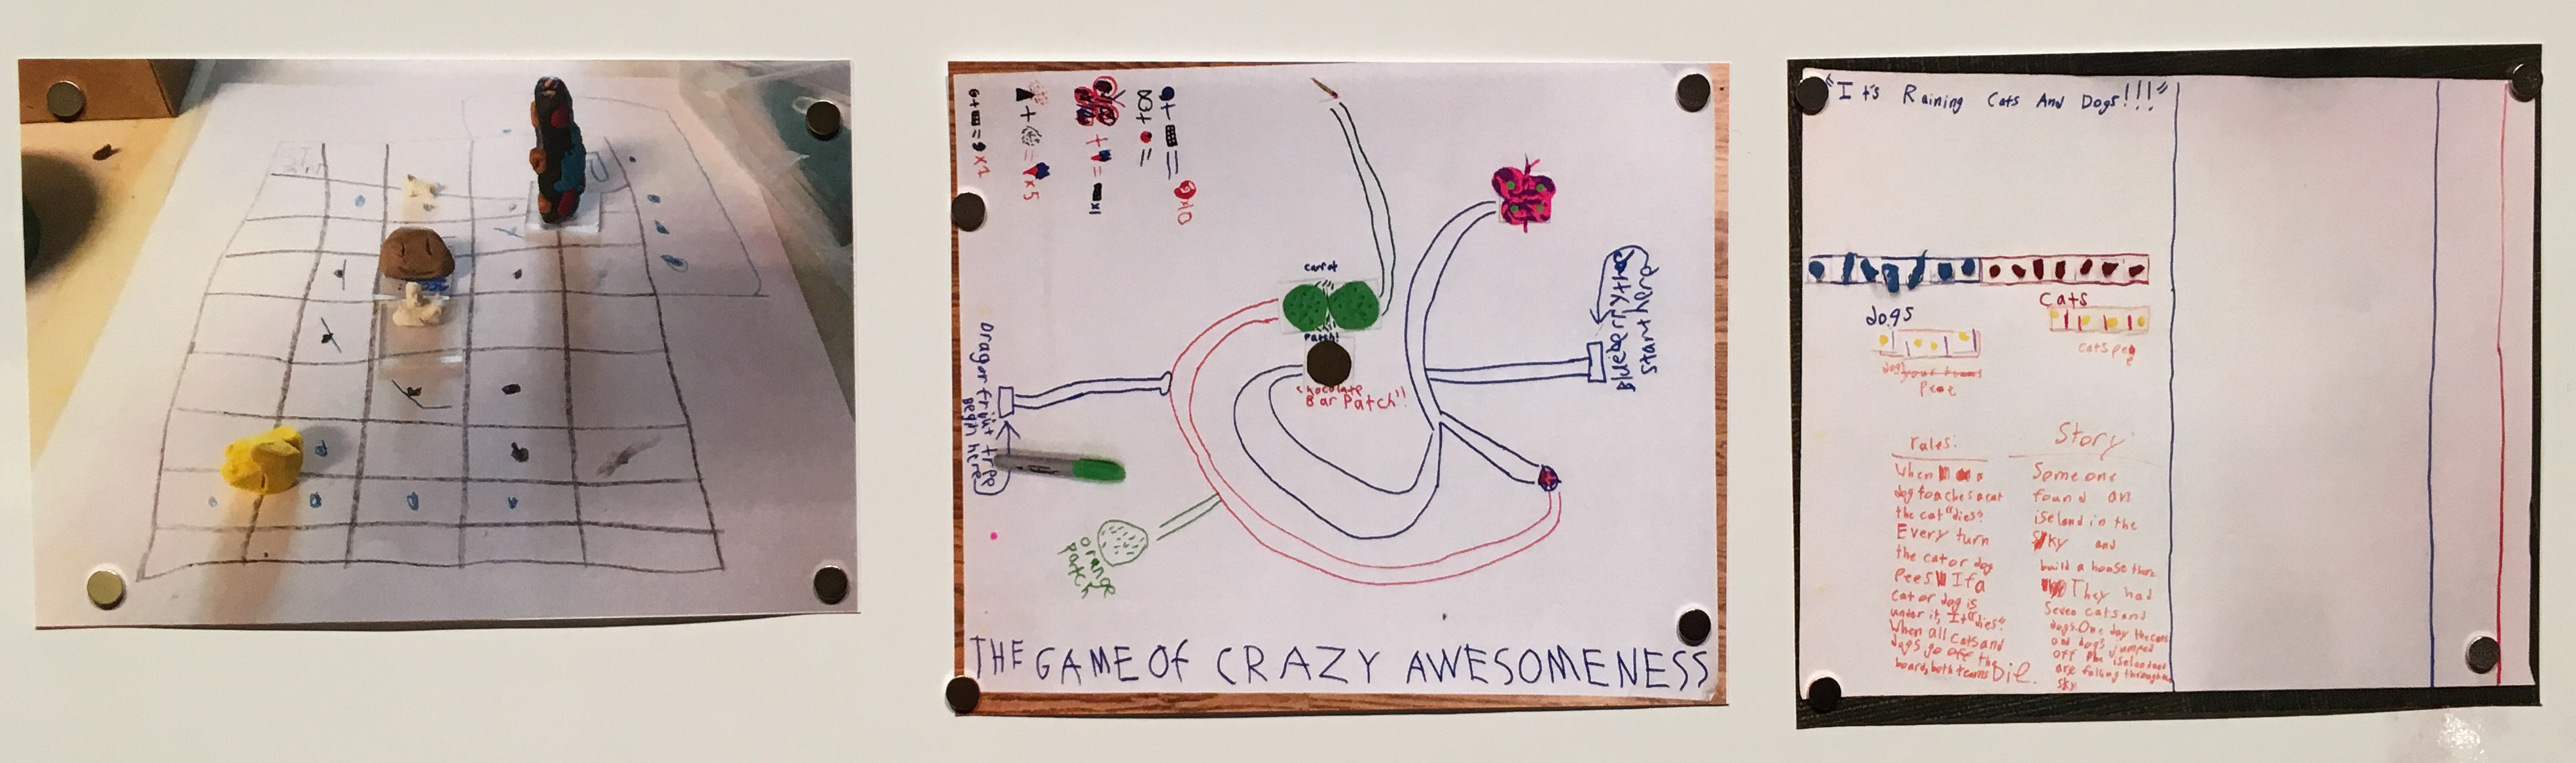 carrot
Patch!
chocolate
Bar Patch!!
Blueberry
start here
Dragon fruit tree
Begin here
orange
patch
6+
=9 x1
x5
x1
x10
THE GAME OF CRAZY AWESOMENESS
"It's Raining Cats And Dogs!!!"
dogs
Cats
cats pee
dogs
Peoe
rules:
When a
dog toaches a cat
the cat "dies".
Every turn
the cat or dog
Pees If a
cat or dog is
under it, It "dies".
When all cats and
dogs go off the
board, both teams Die.
Story
Someone
found an
iseland in the
Sky and
build a house there
They had
Seven cats and
dogs. One day the cats
and dogs jumped
off the iseland and
are falling through the
sky